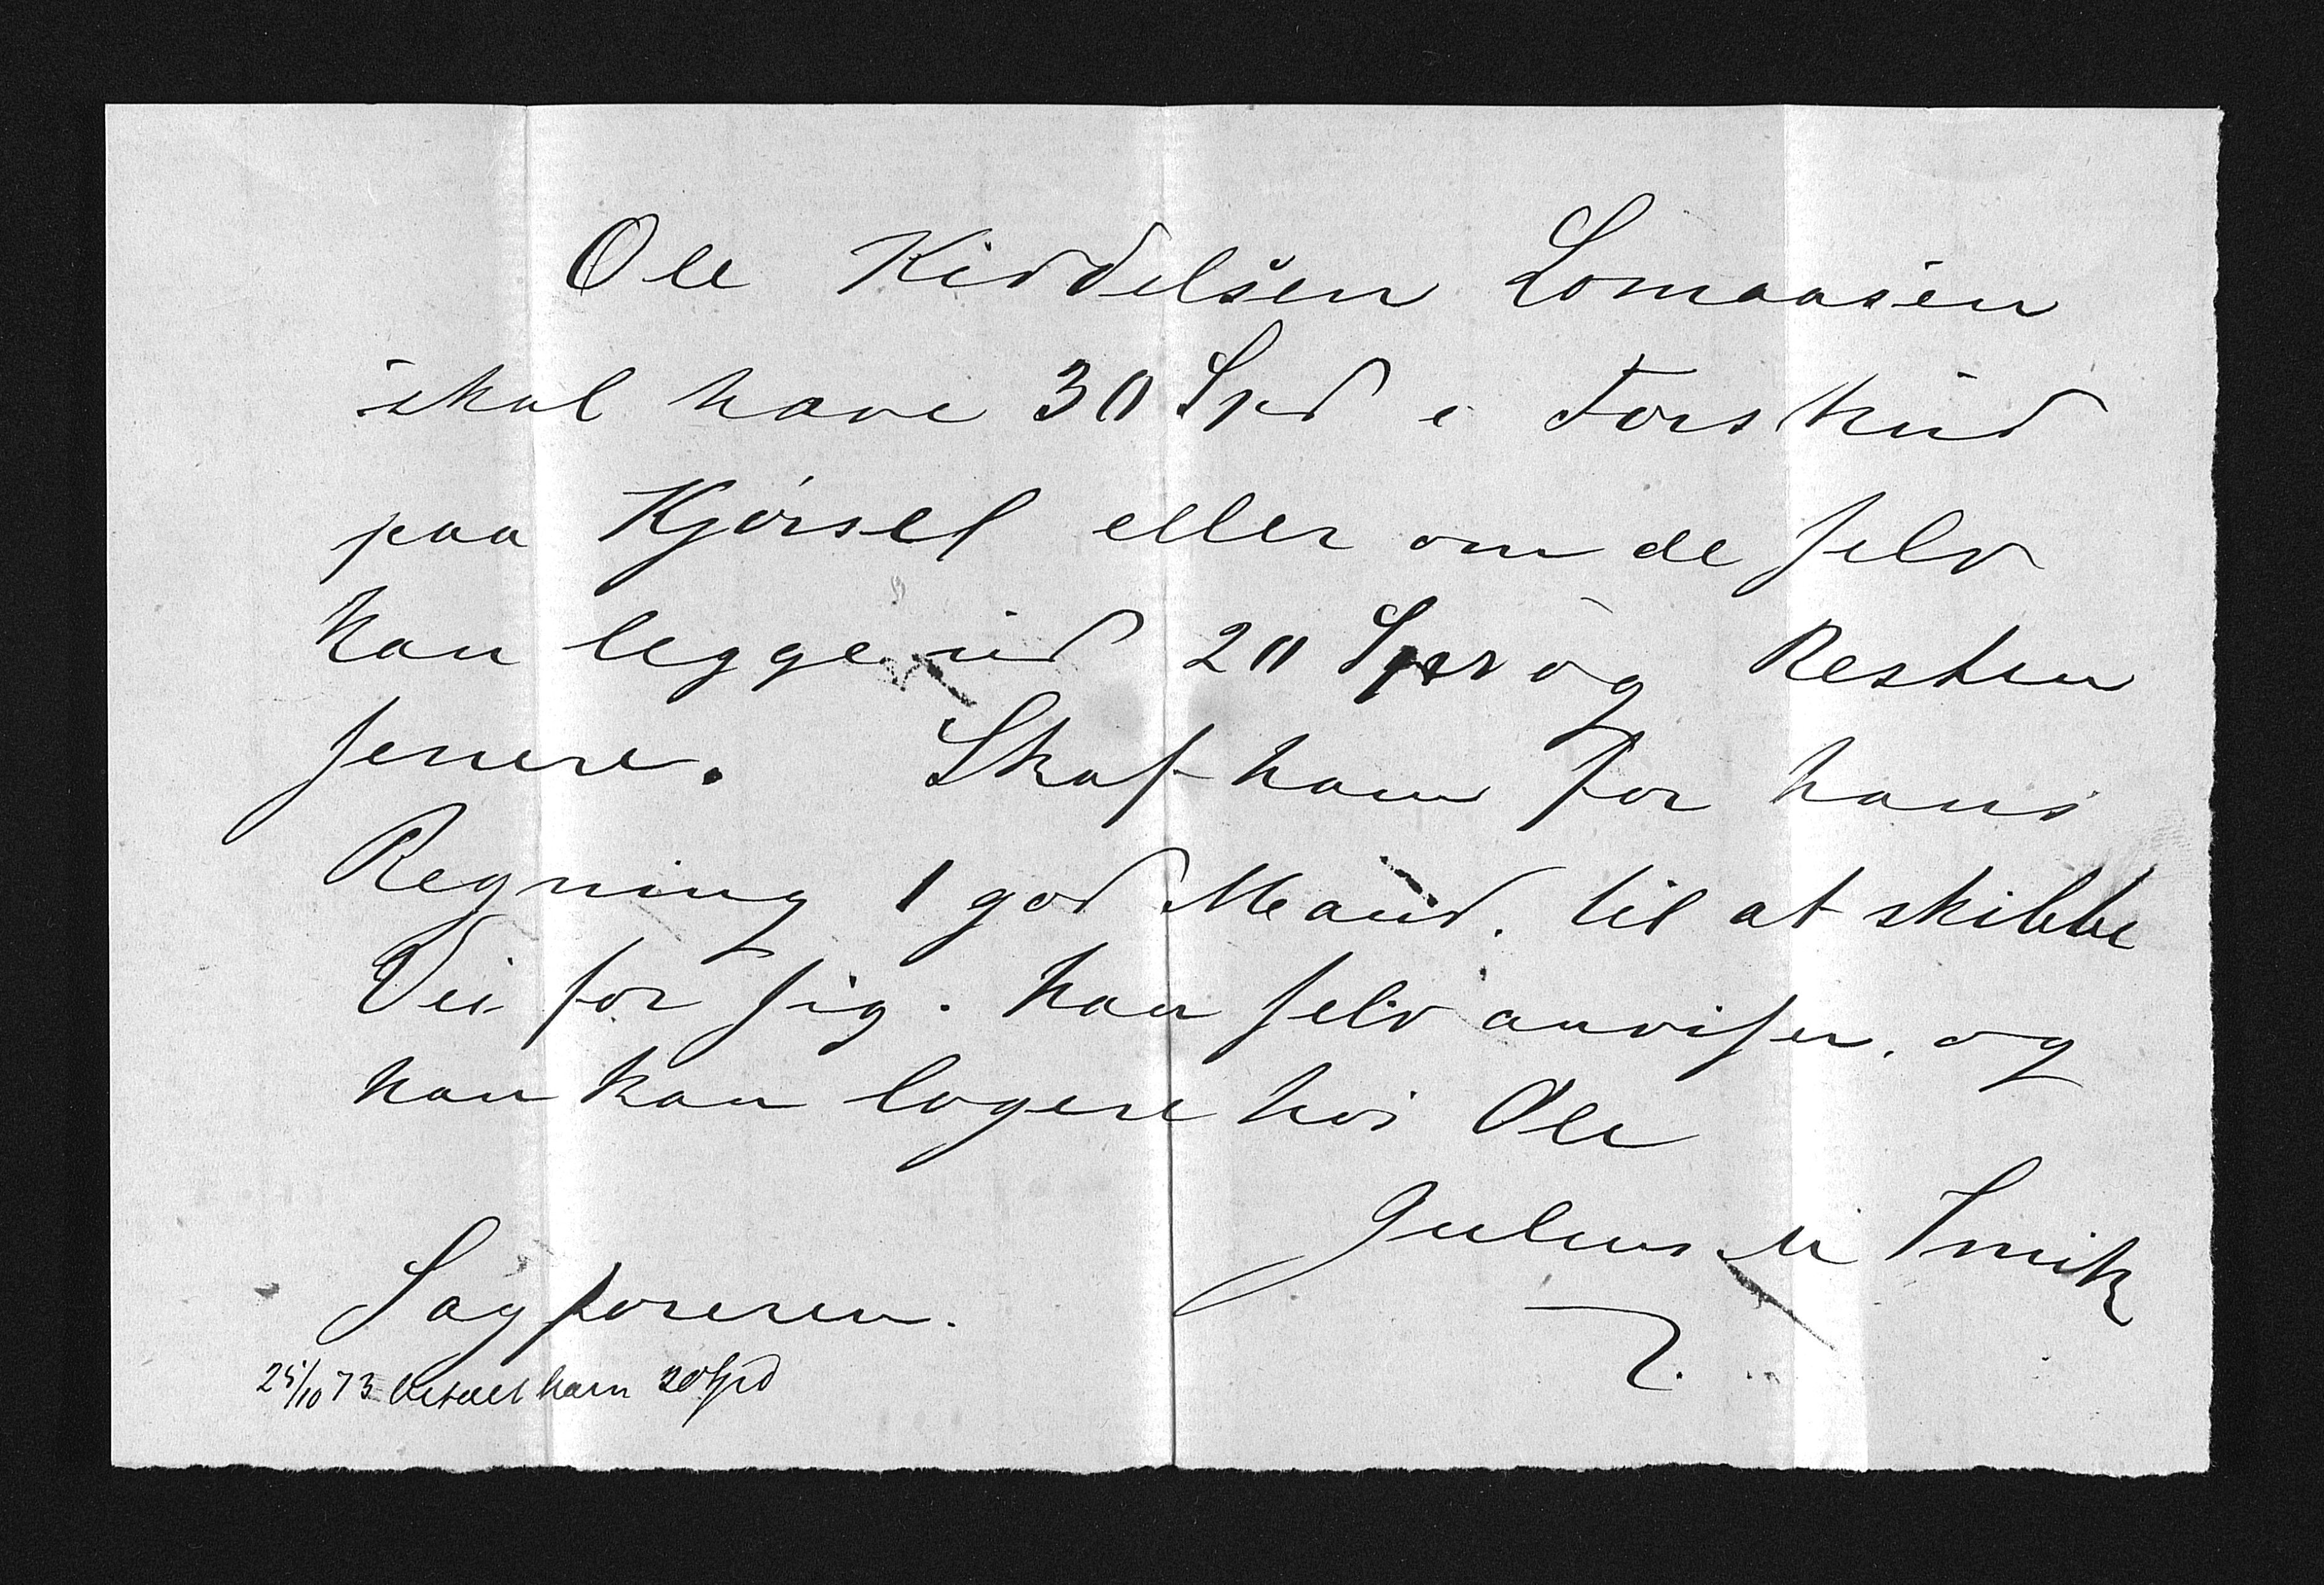 Ole Kiddelsen Lomaasen
skal have 30 Spd i Forskud
paa Kjørsel eller om de selv
kan legge ud 20 Spd og Resten
senere. Skaf ham for hans
Regning 1 god Mand. til at skibbe
Vei for sig. han selv anviser. og
han kan logere hos Ole
Julius Smith
Sagføreren.
25/10 73 betalt ham 20 Spd